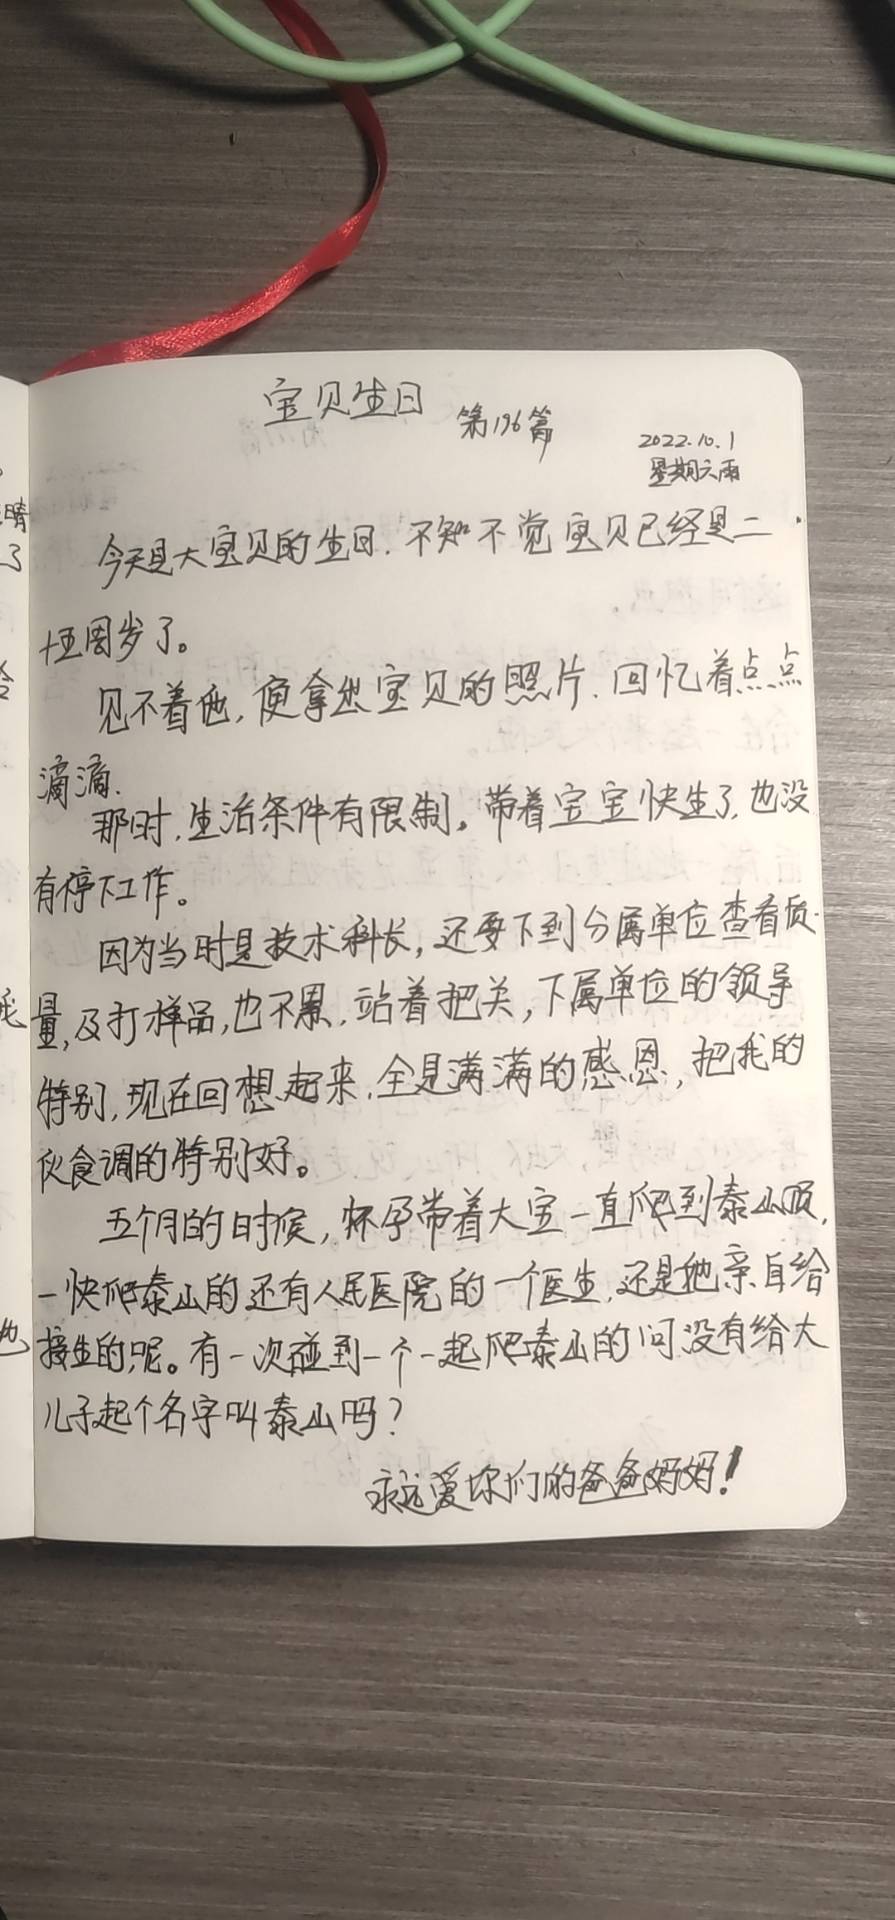 宝贝生日
第196篇
2022.10.1
星期六雨
今天是大宝贝的生日.不知不觉宝贝已经是二
十五周岁了。
见不着他,便拿出宝贝的照片.回忆着点点
滴滴.
那时,生活条件有限制。带着宝宝快生了,也没
有停下工作。
因为当时是技术科长,还要下到分属单位查看质
量,及打样品,也不累.站着把关,下属单位的领导
特别,现在回想起来.全是满满的感恩,把我的
伙食调的特别好。
五个月的时候,怀孕带着大宝一直爬到泰山顶,
一快爬泰山的还有人民医院的一个医生.还是她亲自给
接生的呢。有一次碰到一个一起爬泰山的问没有给大
儿子起个名字叫泰山吗?
永远爱你们的爸爸妈妈!
晴
了
给
我
他